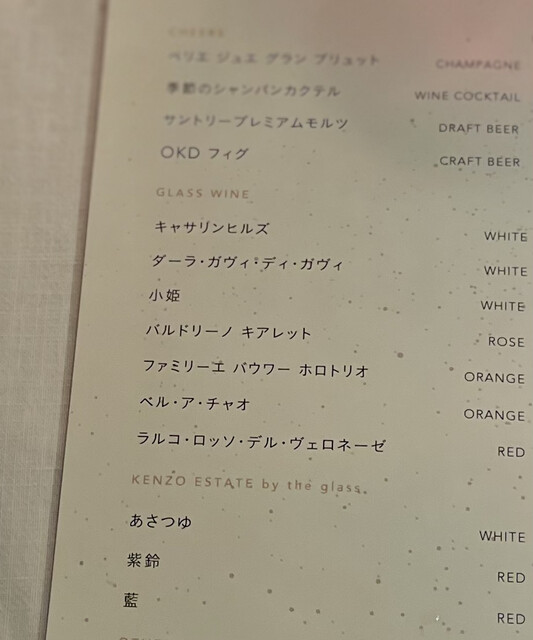 CHEERS
ペリエ ジュエ グラン ブリュット CHAMPAGNE
季節のシャンパンカクテル WINE COCKTAIL
サントリープレミアムモルツ DRAFT BEER
OKD フィグ CRAFT BEER
GLASS WINE
キャサリンヒルズ WHITE
ダーラ・ガヴィ・ディ・ガヴィ WHITE
小姫 WHITE
バルドリーノ キアレット ROSE
ファミリーエ パウワー ホロトリオ ORANGE
ベル・ア・チャオ ORANGE
ラルコ・ロッソ・デル・ヴェロネーゼ RED
KENZO ESTATE by the glass
あさつゆ WHITE
紫鈴 RED
藍 RED